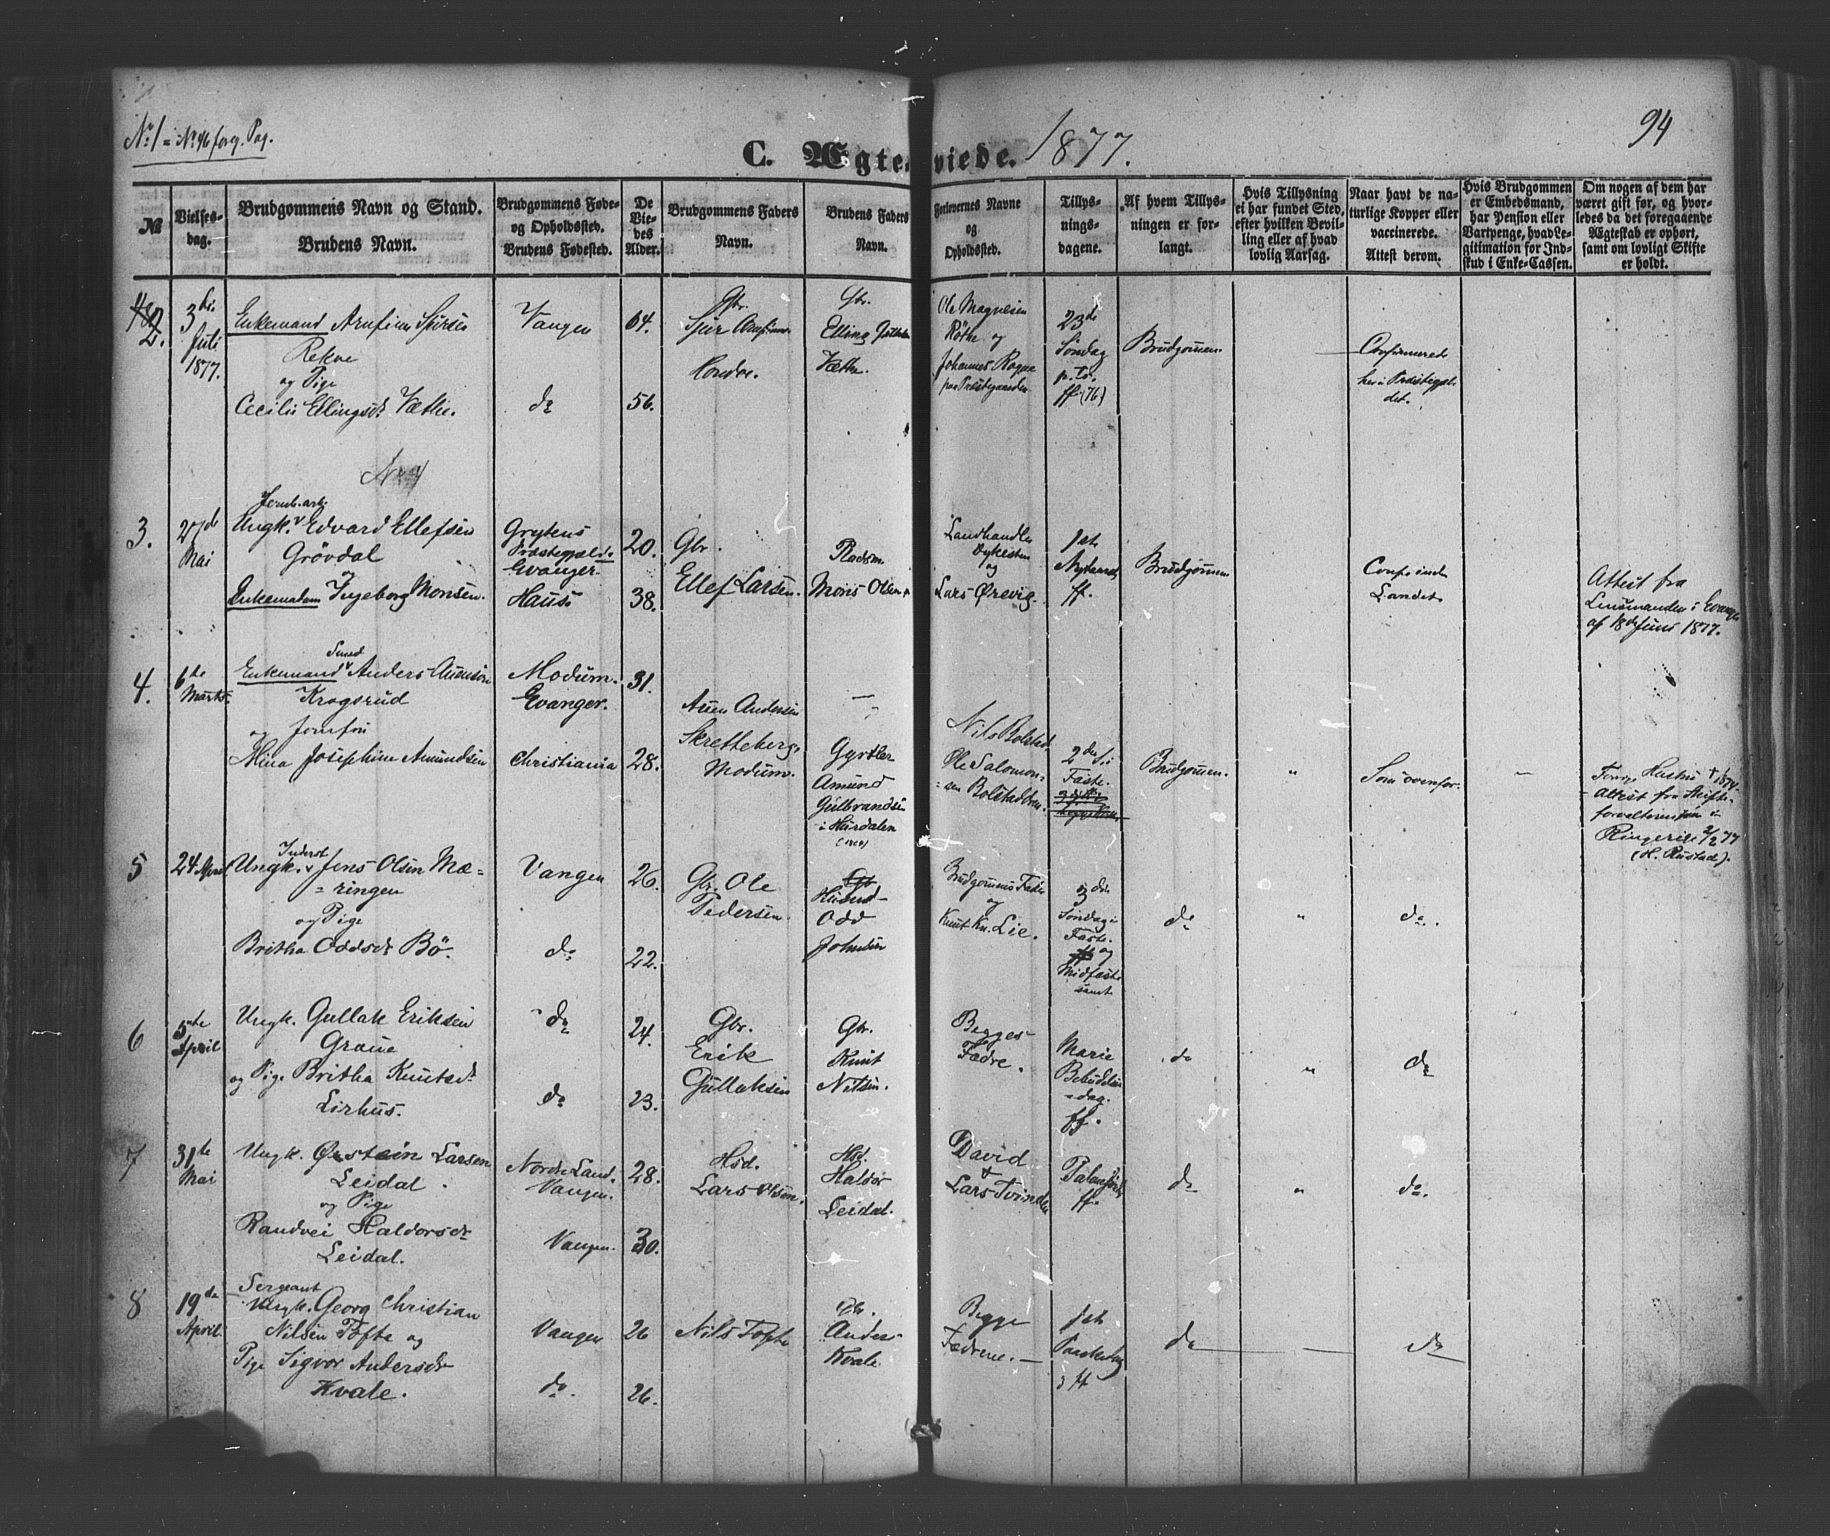 No 1 = No 46 forg. Pag.
C. Ægteviede. 1877.
94
No
Vielses-
dag.
Brudgommens Navn og Stand.
Brudens Navn.
Brudgommens Føde-
og Opholdssted.
Brudens Fødested.
De
Vie-
des
Alder.
Brudgommens Faders
Navn.
Brudens Faders
Navn.
Forlovernes Navne
og
Opholdssted.
Tillys-
nings-
dagene.
Af hvem Tillys-
ningen er for-
langt.
Hvis Tillysning
ei har fundet Sted,
efter hvilken Bevil-
ling eller af hvad
lovlig Aarsag.
Naar havt de na-
turlige Kopper eller
vaccinerede.
Attest derom.
Hvis Brudgommen
er Embedsmand,
har Pension eller
Vartpenge, hvad Le-
gitimation for Ind-
skud i Enke-Cassen.
Om nogen af dem har
været gift før, og hvor-
ledes da det foregaaende
Ægteskab er ophørt,
samt om lovligt Skifte
er holdt.
2.
3die
Juli
1877.
Enkemand Arnfinn
Rekve
og Pige
Cecilie Ellingsdr Væthe.
Vangen
do
64.
56.
Gbr.
Gbr.
Elling
Væthe.
Ole Magnesen
Røthe og
Johannes Rogne
paa Præstegaarden
23de
Søndag
p. Tr.
ff (76)
Brudgommen
Confirmerede
her i Præstegjel-
det.
3.
27de
Mai
Jernb.arb.
Ungk. Edvard Ellefsen
Grøvdal
og
Enkemadam Ingeborg Monsen.
Grytens
Præstegjæld.
Evanger.
Haus
20.
38.
Gbr.
Ellef Larsen.
Mons Olsen
Landhandler
Dykesten
og
Lars Ørevig.
1ste
Nytaarsd
ff.
Brudgommen
Conf. inde
Landet.
Attest fra
Lensmanden i Evanger
af 18de Juni 1877.
4.
6te
Marts.
Smed
Enkemand Anders Auensen
Krogsrud
og Jomfru
Mina Josephine Amundsen
Modum.
Evanger.
Christiania
31.
28.
Auen Andersen
Skretteberg,
Modum.
Gyrtler
Amund
Gulbrandsen
i Hurdalen
Nils Bolstad
Ole Salomon-
sen Bolstadøren.
2den S. i
Faste.
Brudgommen.
"
Som ovenfor.
—
Forrige Hustru † 1874
Attest fra Skifte-
forvalteren i
Ringerige 2/2 77
(H. Rustad).
5
24 April
Inderst
Ungk. Jens Olsen Mæ-
ringen
og Pige
Britha Oddsdr Bø.
Vangen
do
26.
22.
Gbr. Ole
Pedersen.
Husmd
Odd
Johnsen
Brudgommens Fader
og
Knut Kn. Lie.
3die
Søndag i
Faste
og
Midfaste
samt
do
"
do.
6
5te
April
Ungk. Gullak Eriksen
Graue
og Pige Britha Knutsdr
Lirhus.
do
do
24.
23.
Gbr.
Erik
Gullaksen
Gbr.
Knut
Nilsen.
Begges
Fædre.
Marie
Bebudelses
dag.
ff.
do
"
do
7
31te
Mai
Ungk. Østein Larsen
Leidal
og Pige
Randvei Haldorsdr
Leidal.
Nordre Land.
Vangen.
Vangen.
28.
30.
Hsd.
Lars Olsen.
Hsd.
Haldor
Leidal.
David
&
Lars Tvinde
Palmesønd
ff.
do
"
do.
8
19de
April
Sergeant
Ungk. Georg Christian
Nilsen Tofte og
Pige Sigvor Andersdr
Kvale.
Vangen
do.
26
26.
Nils Tofte
Gbr.
Anders
Kvale
Begge
Fædrene.
1ste
Paaskedag
& ff
do
do